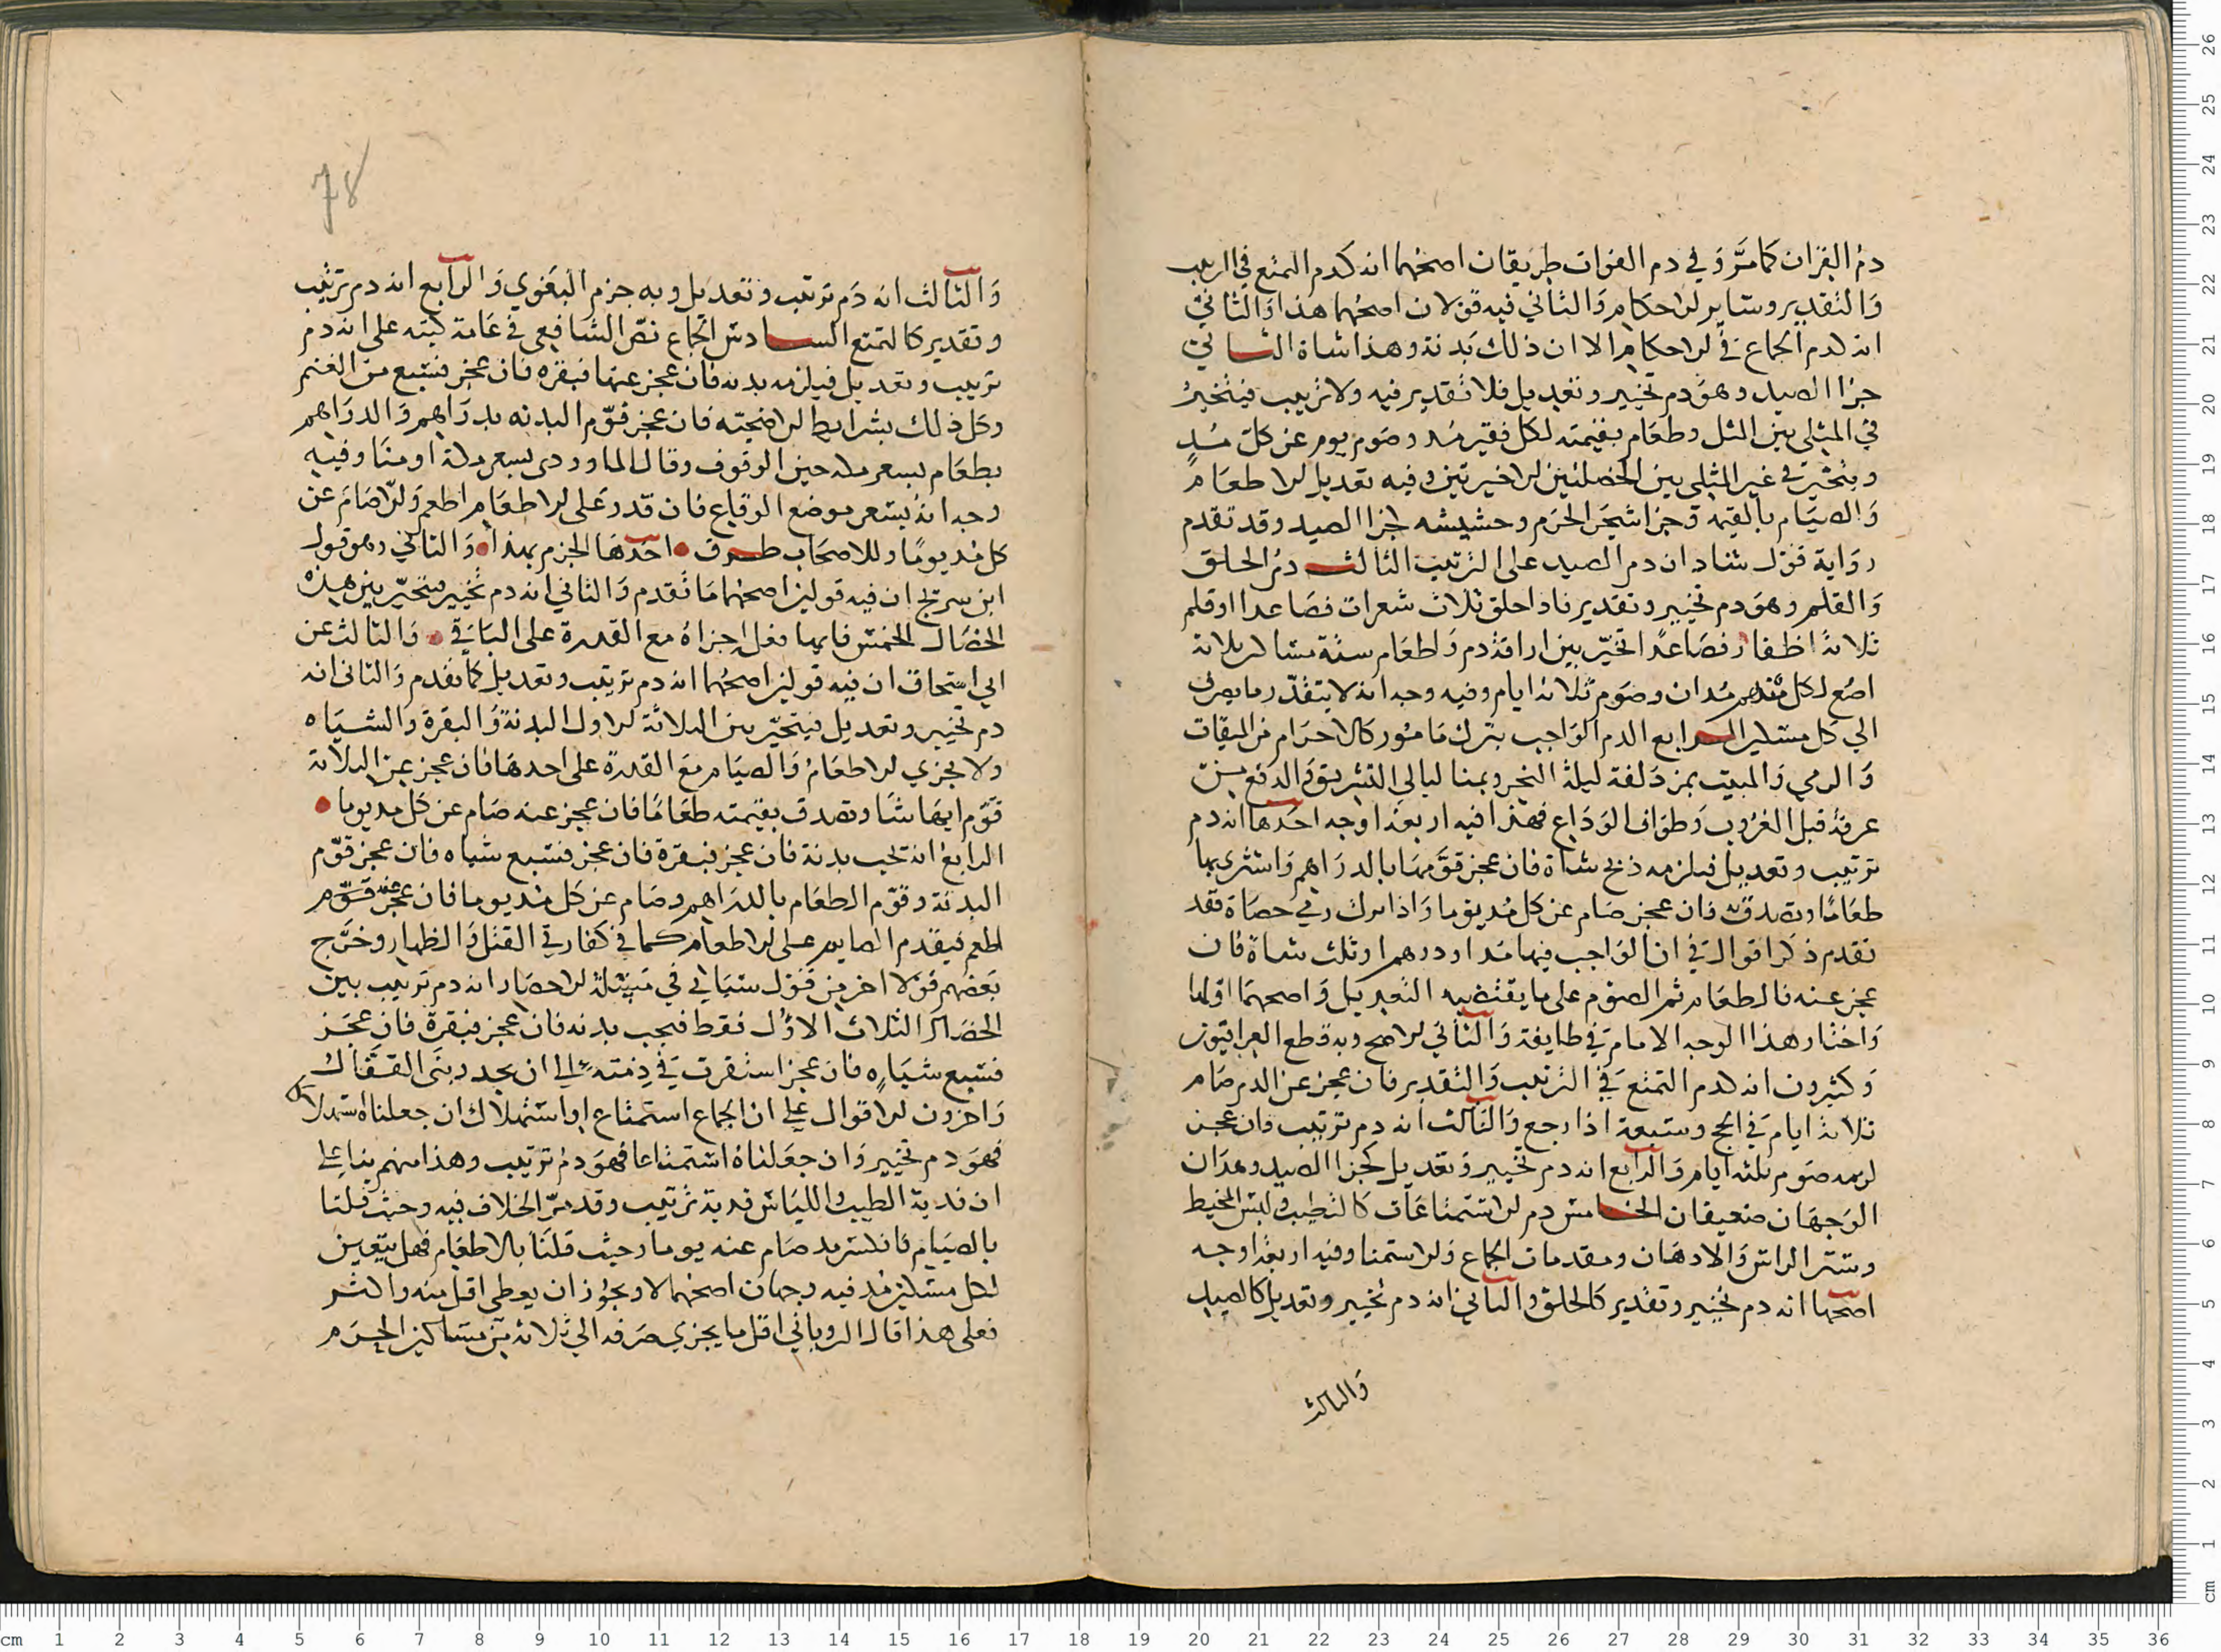 دم القران كما مر وفي دم الفوات طريقان اصحهما انه كدم التمتع في الترتيب
والتقدير وساير الاحكام والثاني فيه قولان اصحهما هذا والثاني
انه كدم الجماع في الاحكام الا ان ذلك بدنة وهذا شاة الثاني
جزا الصيد وهو دم تخيير وتعديل فلا تقدير فيه ولا ترتيب فيتخير
في المثلي بين المثل وطعام بقيمته لكل فقير مد وصوم يوم عن كل مد
ويتخير في غير المثلي بين الخصلتين الاخيرتين وفيه تعديل الاطعام
والصيام بالقيمة وجزا شجر الحرم وحشيشه كجزا الصيد وقد تقدم
رواية قول شاذ ان دم الصيد على الترتيب الثالث دم الحلق
والقلم وهو دم تخيير وتقدير فاذا حلق ثلاث شعرات فصاعدا او قلم
ثلاثة اظفار فصاعدا تخير بين اراقة دم واطعام ستة مساكين ثلاثة
اصع لكل منهم مدان وصوم ثلاثة ايام وفيه وجه انه لا يتقدر ما يصرف
الي كل مسكين الرابع الدم الواجب بترك مامور كالاحرام من الميقات
والرمي والمبيت بمزدلفة ليلة النحر وبمنا ليالي التشريق والدفع من
عرفة قبل الغروب وطواف الوداع فهذا فيه اربعة اوجه احدها انه دم
ترتيب وتعديل فيلزمه ذبح شاة فان عجز قومها بالدراهم واشترى بها
طعاما وتصدق به فان عجز صام عن كل مد يوما واذا ترك رمي حصاة فقد
تقدم ذكر اقوال في ان الواجب فيها مد او درهم او ثلث شاة فان
عجز عنه فالطعام ثم الصوم على ما يقتضيه التعديل واصحهما اولها
واختار هذا الوجه الامام في طايفة والثاني الاصح وبه قطع العراقيون
وكثيرون انه كدم التمتع في الترتيب والتقدير فان عجز عن الدم صام
ثلاثة ايام في الحج وسبعة اذا رجع والثالث انه دم ترتيب فان عجز
لزمه صوم ثلثه ايام والرابع انه دم تخيير وتعديل كجزا الصيد وهذان
الوجهان ضعيفان الخامس دم الاستمتاعات كالتطيب ولبس المخيط
وستر الراس والادهان ومقدمات الجماع والاستمنا وفيه اربعة اوجه
اصحها انه دم تخيير وتقدير كالحلق والثاني انه دم تخيير وتعديل كالصيد
والثالث
78
والثالث انه دم ترتيب وتعديل وبه جزم البغوي والرابع انه دم ترتيب
وتقدير كالتمتع السادس الجماع نص الشافعي في عامة كتبه على انه دم
ترتيب وتعديل فيلزمه بدنه فان عجز عنها فبقره فان عجز فسبع من الغنم
وكل ذلك بشرايط الاضحيه فان عجز قوم البدنه بدراهم والدراهم
بطعام بسعر مكة حين الوقوف وقال الماوردى بسعر مكة او منا وفيه
وجه انه بسعر موضع الوقاع فان قدر على الاطعام اطعم والا صام عن
كل مد يوما وللاصحاب طرق احدها الجزم بهذا والثاني وهو قول
ابن سريج ان فيه قولين اصحهما ما تقدم والثاني انه دم تخيير يتخير بين هذه
الخصال الخمس فايها فعل اجزاه مع القدرة على الباقي والثالث عن
ابي اسحاق ان فيه قولين اصحهما انه دم ترتيب وتعديل كما تقدم والثانى انه
دم تخيير وتعديل فيتخير بين الثلاثة الاول البدنة والبقرة والشياه
ولا يجزي الاطعام والصيام مع القدرة على احدها فان عجز عن الثلاثة
قوم ايها شا وتصدق بقيمته طعاما فان عجز عنه صام عن كل مد يوما
الرابع انه تجب بدنة فان عجز فبقرة فان عجز فسبع شياه فان عجز قوم
البدنة وقوم الطعام بالدراهم وصام عن كل مد يوما فان عجز عنه قوم
اطعم فيقدم الصايم على الاطعام كما في كفارتي القتل والظهار وخرج
بعضهم قولا اخر من قول سياتي في مسئلة الاحصار انه دم ترتيب بين
الخصال الثلاث الاول فقط فيجب بدنه فان عجز فبقرة فان عجز
فسبع شياه فان عجز استقرت في ذمته الي ان يجد وبنى القفال
واخرون الاقوال علي ان الجماع استمتاع او استهلاك ان جعلناه استهلاكا
فهو دم تخيير وان جعلناه استمتاعا فهو دم ترتيب وهذا منهم بنا على
ان فدية الطيب واللباس فدية ترتيب وقد مر الخلاف فيه وحيث قلنا
بالصيام فانكسر مد صام عنه يوما وحيث قلنا بالاطعام فهل يتعين
لكل مسكين مد فيه وجهان اصحهما لا ويجوز ان يعطى اقل منه واكثر
فعلى هذا قال الروياني اقل ما يجزي صرفه الي ثلاثة من مساكين الحرم